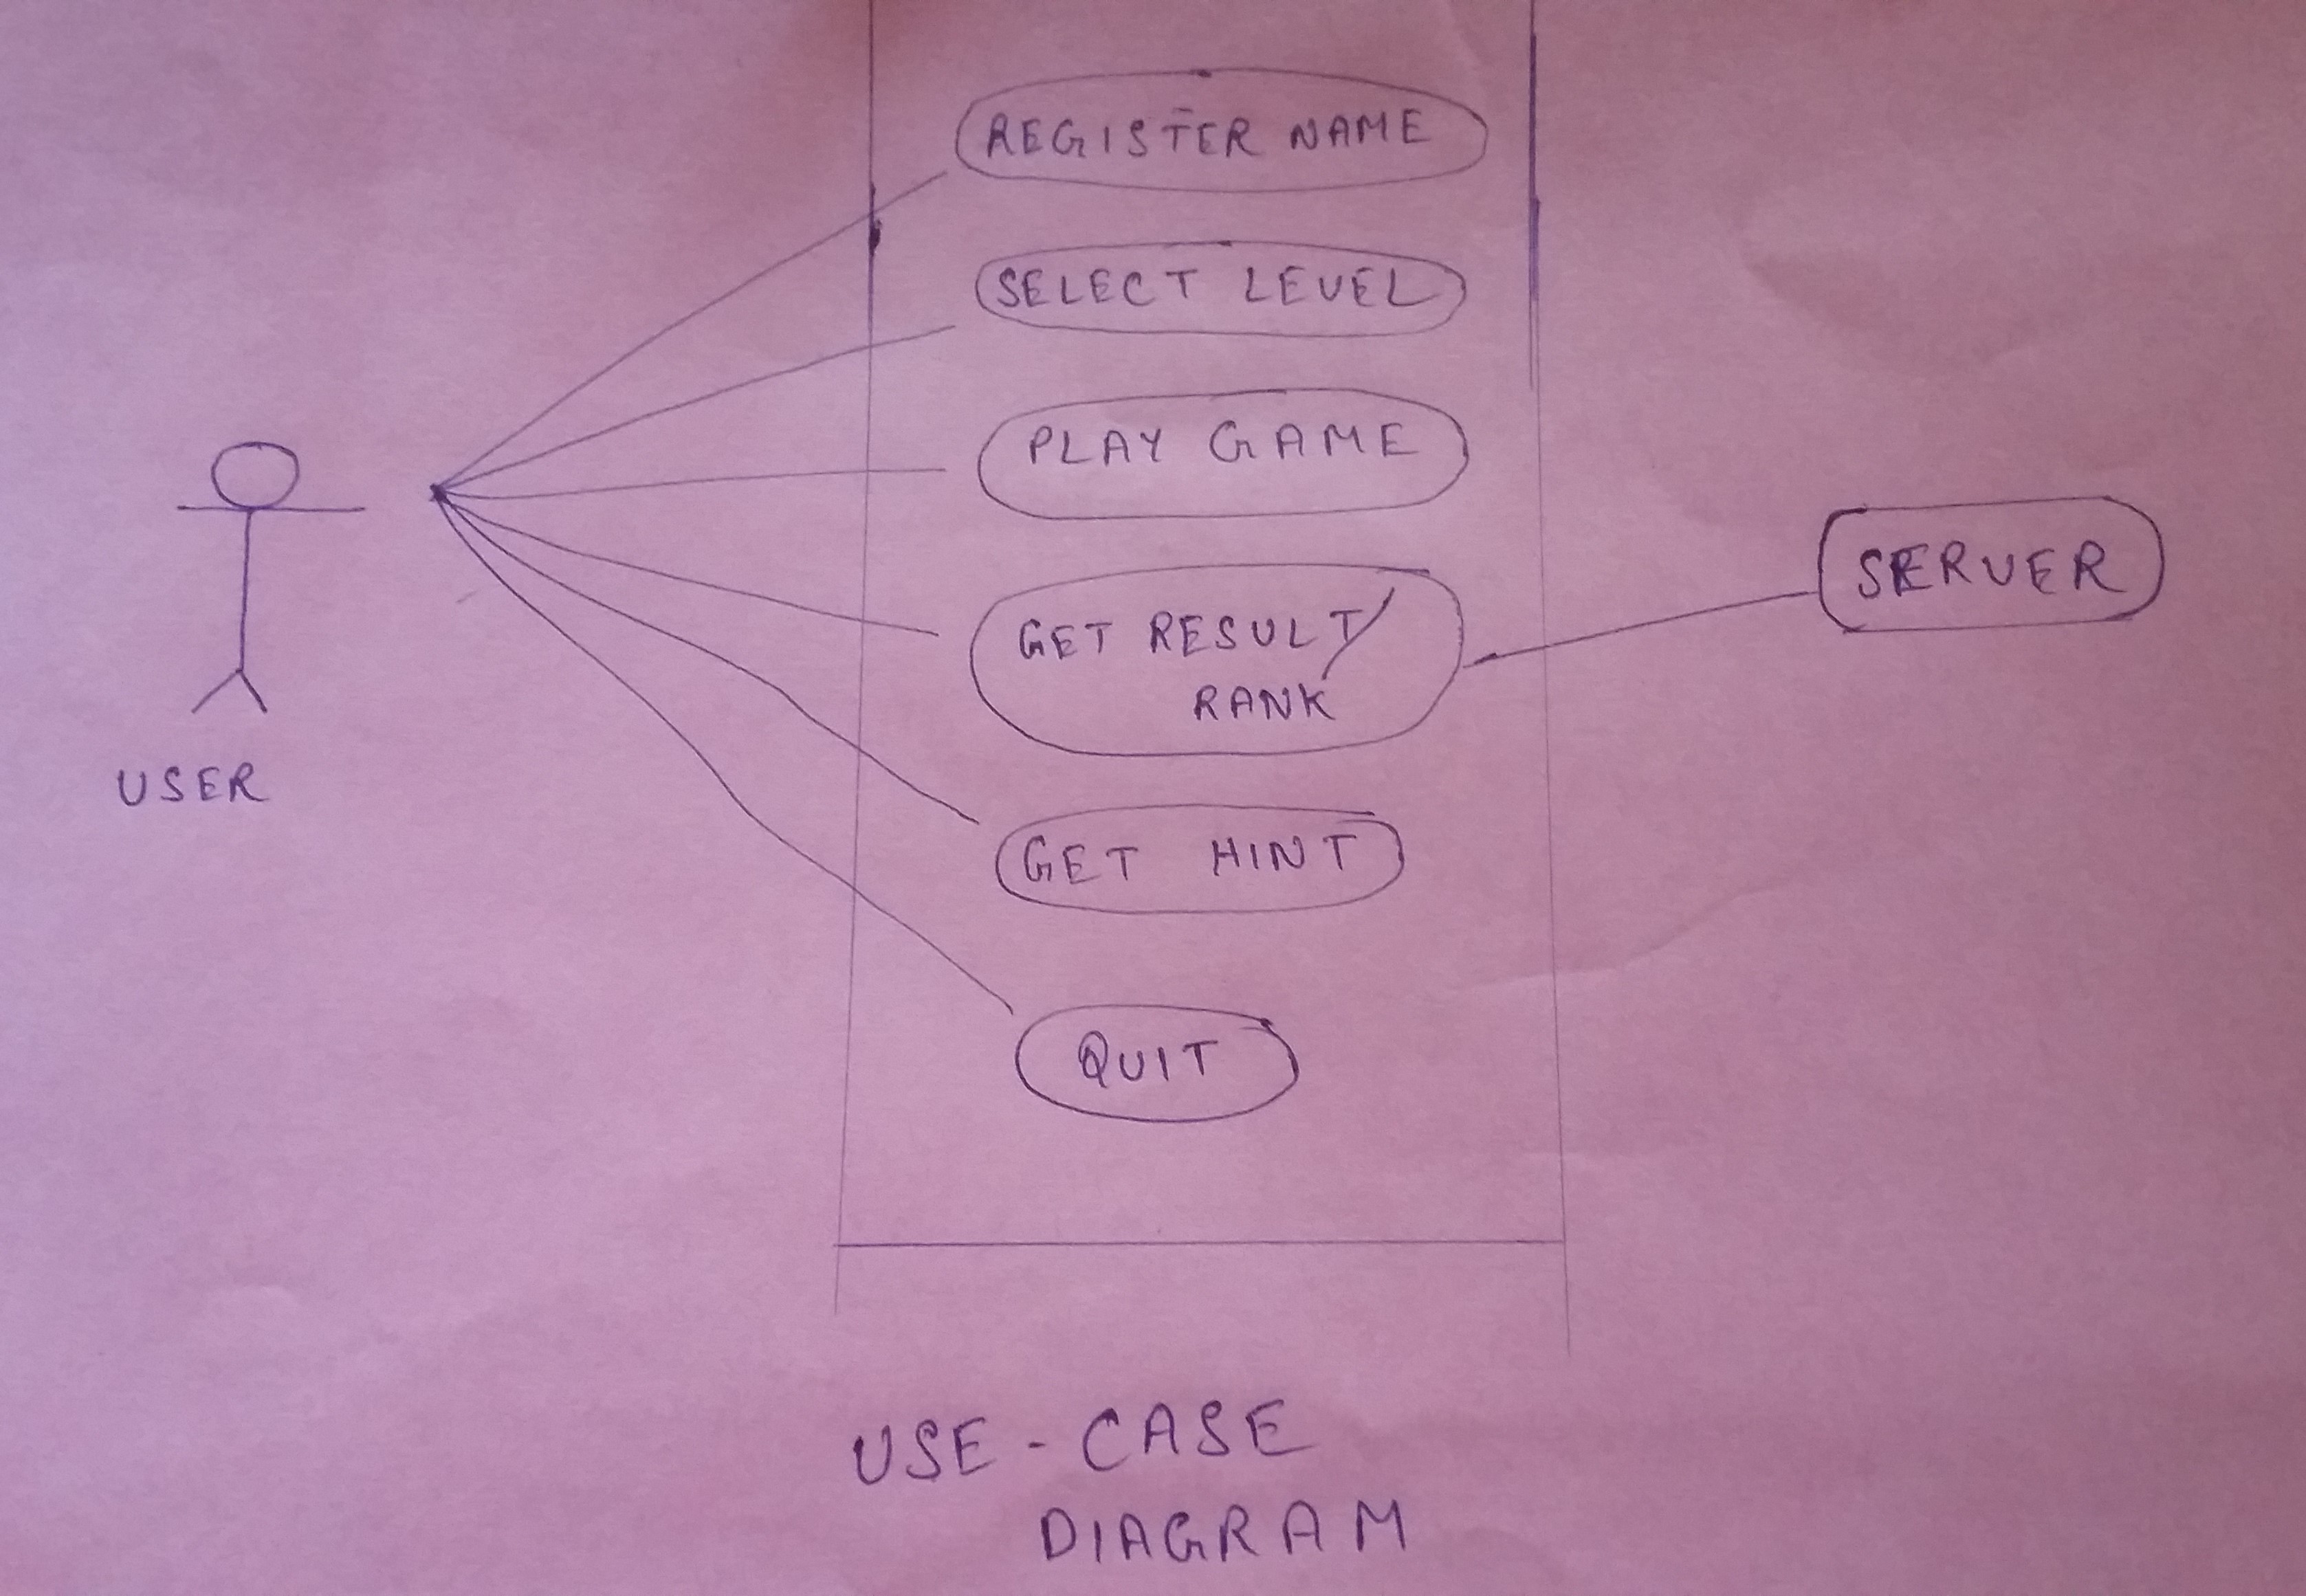 REGISTER NAME
SELECT LEVEL
PLAY GAME
GET RESULT/
RANK
GET HINT
QUIT
USER
SERVER
USE-CASE
DIAGRAM